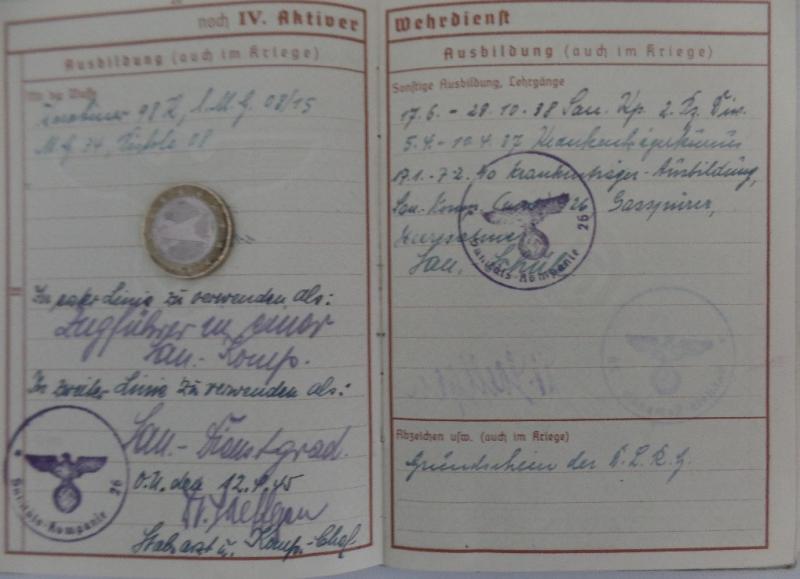 noch IV. Aktiver
Ausbildung (auch im Kriege)
Mit der Waffe
98 K, l. M.G. 08/15
M.G. 34, Pistole 08
In erster Linie zu verwenden als:
Zugführer in einer
San.-Komp.
In zweiter Linie zu verwenden als:
San.-Dienstgrad.
O.U. den
Sanitäts-Kompanie 26
Stabsarzt u. Komp.-Chef
Wehrdienst
Ausbildung (auch im Kriege)
Sonstige Ausbildung, Lehrgänge
17.6. - 28.10.38 San. Kp. 2. Pz. Div.
5.4. - 10.4.37
17.1. - 7.2.40 Krankenträger-Ausbildung,
San.-Komp. 26 Gasspürer,
San.
Sanitäts-Kompanie 26
Abzeichen usw. (auch im Kriege)
Grundschein der D.L.R.G.